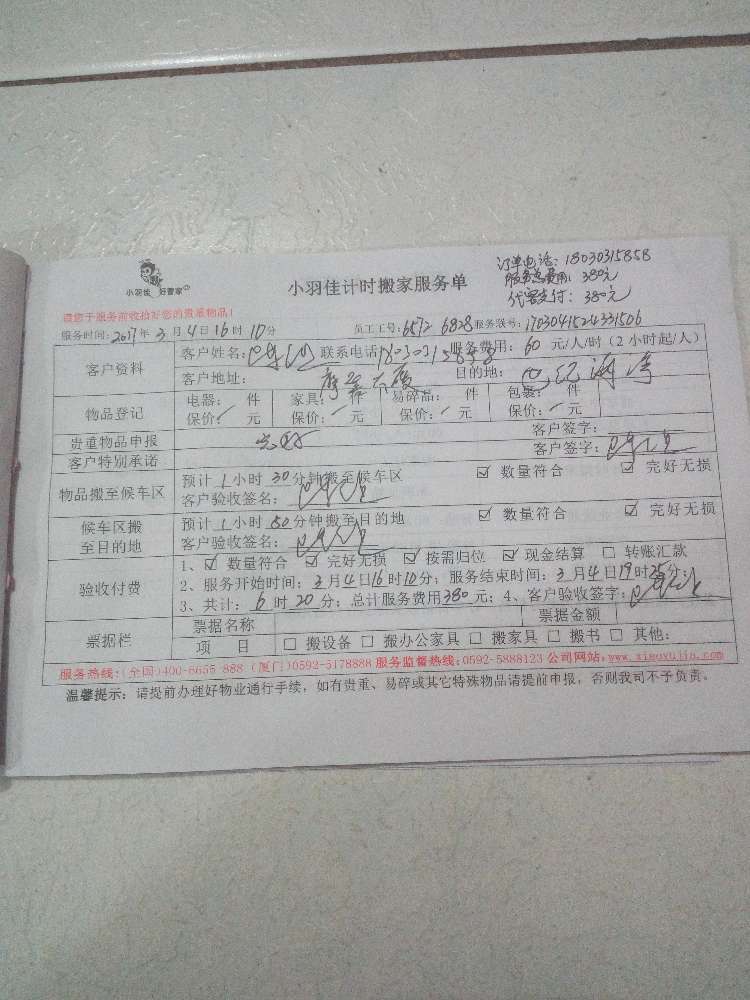 订单电话：18030315858
服务总费用：380元
代客支付：380元
小羽佳 好管家
小羽佳计时搬家服务单
请您于服务前收拾好您的贵重物品！
服务时间：2017年3月4日16时10分 员工工号：6572 6828 服务账号：1703041524331506
客户资料
客户姓名： 联系电话 18030315858 服务费用：60元/人/时（2小时起/人）
客户地址： 大厦 目的地：世纪海湾
物品登记
电器： 件 家具： 件 易碎品： 件 包裹： 件
保价：✓元 保价：✓元 保价：✓元 保价：✓元
贵重物品申报 客户签字：
客户特别承诺 客户签字：
物品搬至候车区
预计1小时30分钟搬至候车区 ☑ 数量符合 ☑ 完好无损
客户验收签名：
候车区搬至目的地
预计1小时50分钟搬至目的地 ☑ 数量符合 ☑ 完好无损
客户验收签名：
验收付费
1、☑ 数量符合 ☑ 完好无损 ☑ 按需归位 ☑ 现金结算 □ 转账汇款
2、服务开始时间：3月4日16时10分；服务结束时间：3月4日19时25分；
3、共计：6时20分；总计服务费用380元；4、客户验收签字：
票据栏
票据名称 票据金额
项 目 □ 搬设备 □ 搬办公家具 □ 搬家具 □ 搬书 □ 其他：
服务热线：(全国)400-6655-888 (厦门)0592-5178888 服务监督热线：0592-5888123 公司网站：www.xiaoyujia.com
温馨提示：请提前办理好物业通行手续，如有贵重、易碎或其它特殊物品请提前申报，否则我司不予负责。